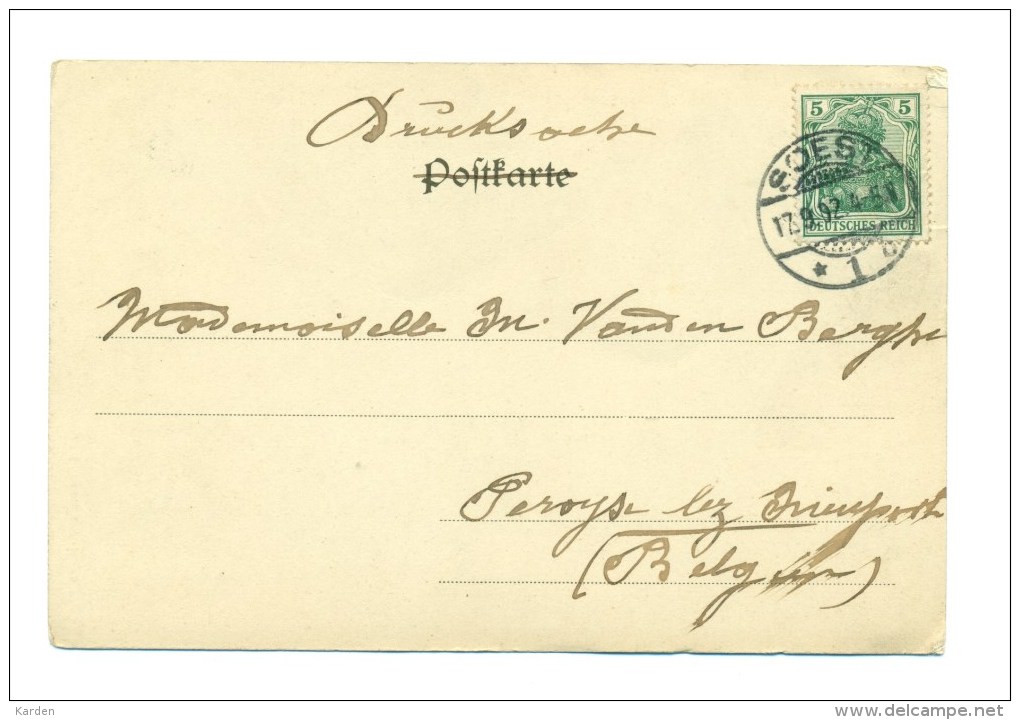 Drucksache
Postkarte
5 5
DEUTSCHES REICH
SOEST
17.9.02. 4-5 N
* 1 c
Mademoiselle M. Vanden Berghe
Pervyse lez Nieuport
(Belgien)
Karden
www.delcampe.net